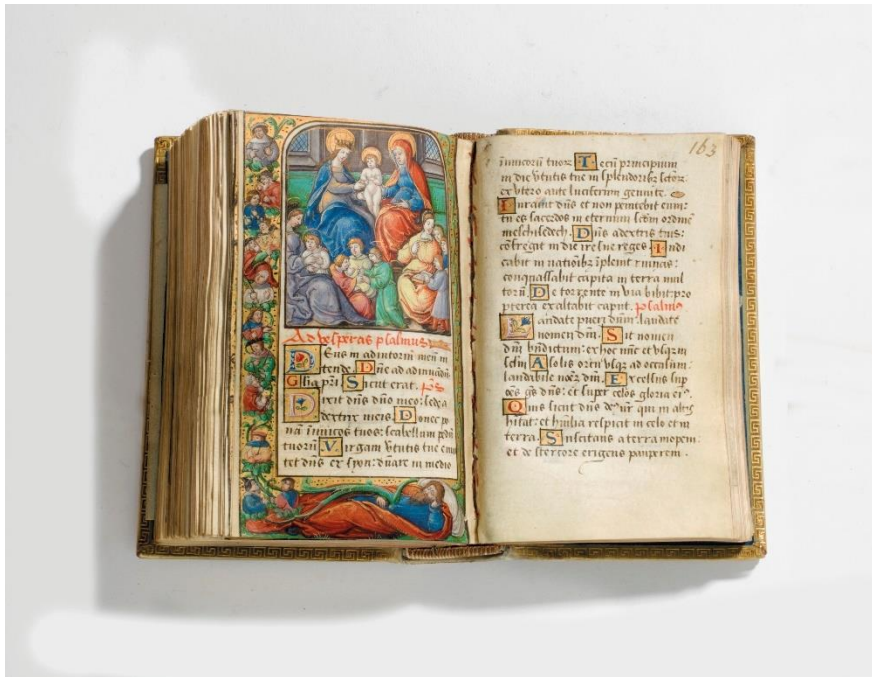 Ad vesperas psalmus
Deus in adiutoriū meū in
tende. Dne ad adiuuādū
Glia pri. Sicut erat. ps
Dixit dns dno meo: sede a
dextris meis. Donec po
nā inimicos tuos: scabellum pedū
tuorū Virgam vtutis tue emi
tet dns ex syon: dnare in medio
163
inimicorū tuoꝝ Tecū principium
in die vtutis tue in splendoribꝫ sctoꝝ
ex vtero ante luciferum genui te.
Iurauit dns et non penitebit eum:
tu es sacerdos in eternum scdm ordinē
melchisedech. Dns a dextris tuis:
cōfregit in die ire sue reges. Iudi
cabit in natiōibꝫ īplebit ruinas:
conquassabit capita in terra mul
torū. De torrente in via bibit: pro
pterea exaltabit caput. psalmus
Laudate pueri dnm: laudate
nomen dni. Sit nomen
dni bndictum: ex hoc nūc et vsqꝫ in
sclm A solis ortu vsqꝫ ad occasum:
laudabile nomē dni. Excelsus sup
oēs gētes dns: et super celos gloria eiꝰ.
Quis sicut dns deꝰ nr̄ qui in altis
hitat: et humilia respicit in celo et in
terra. Suscitans a terra inopem:
et de stercore erigens pauperem.